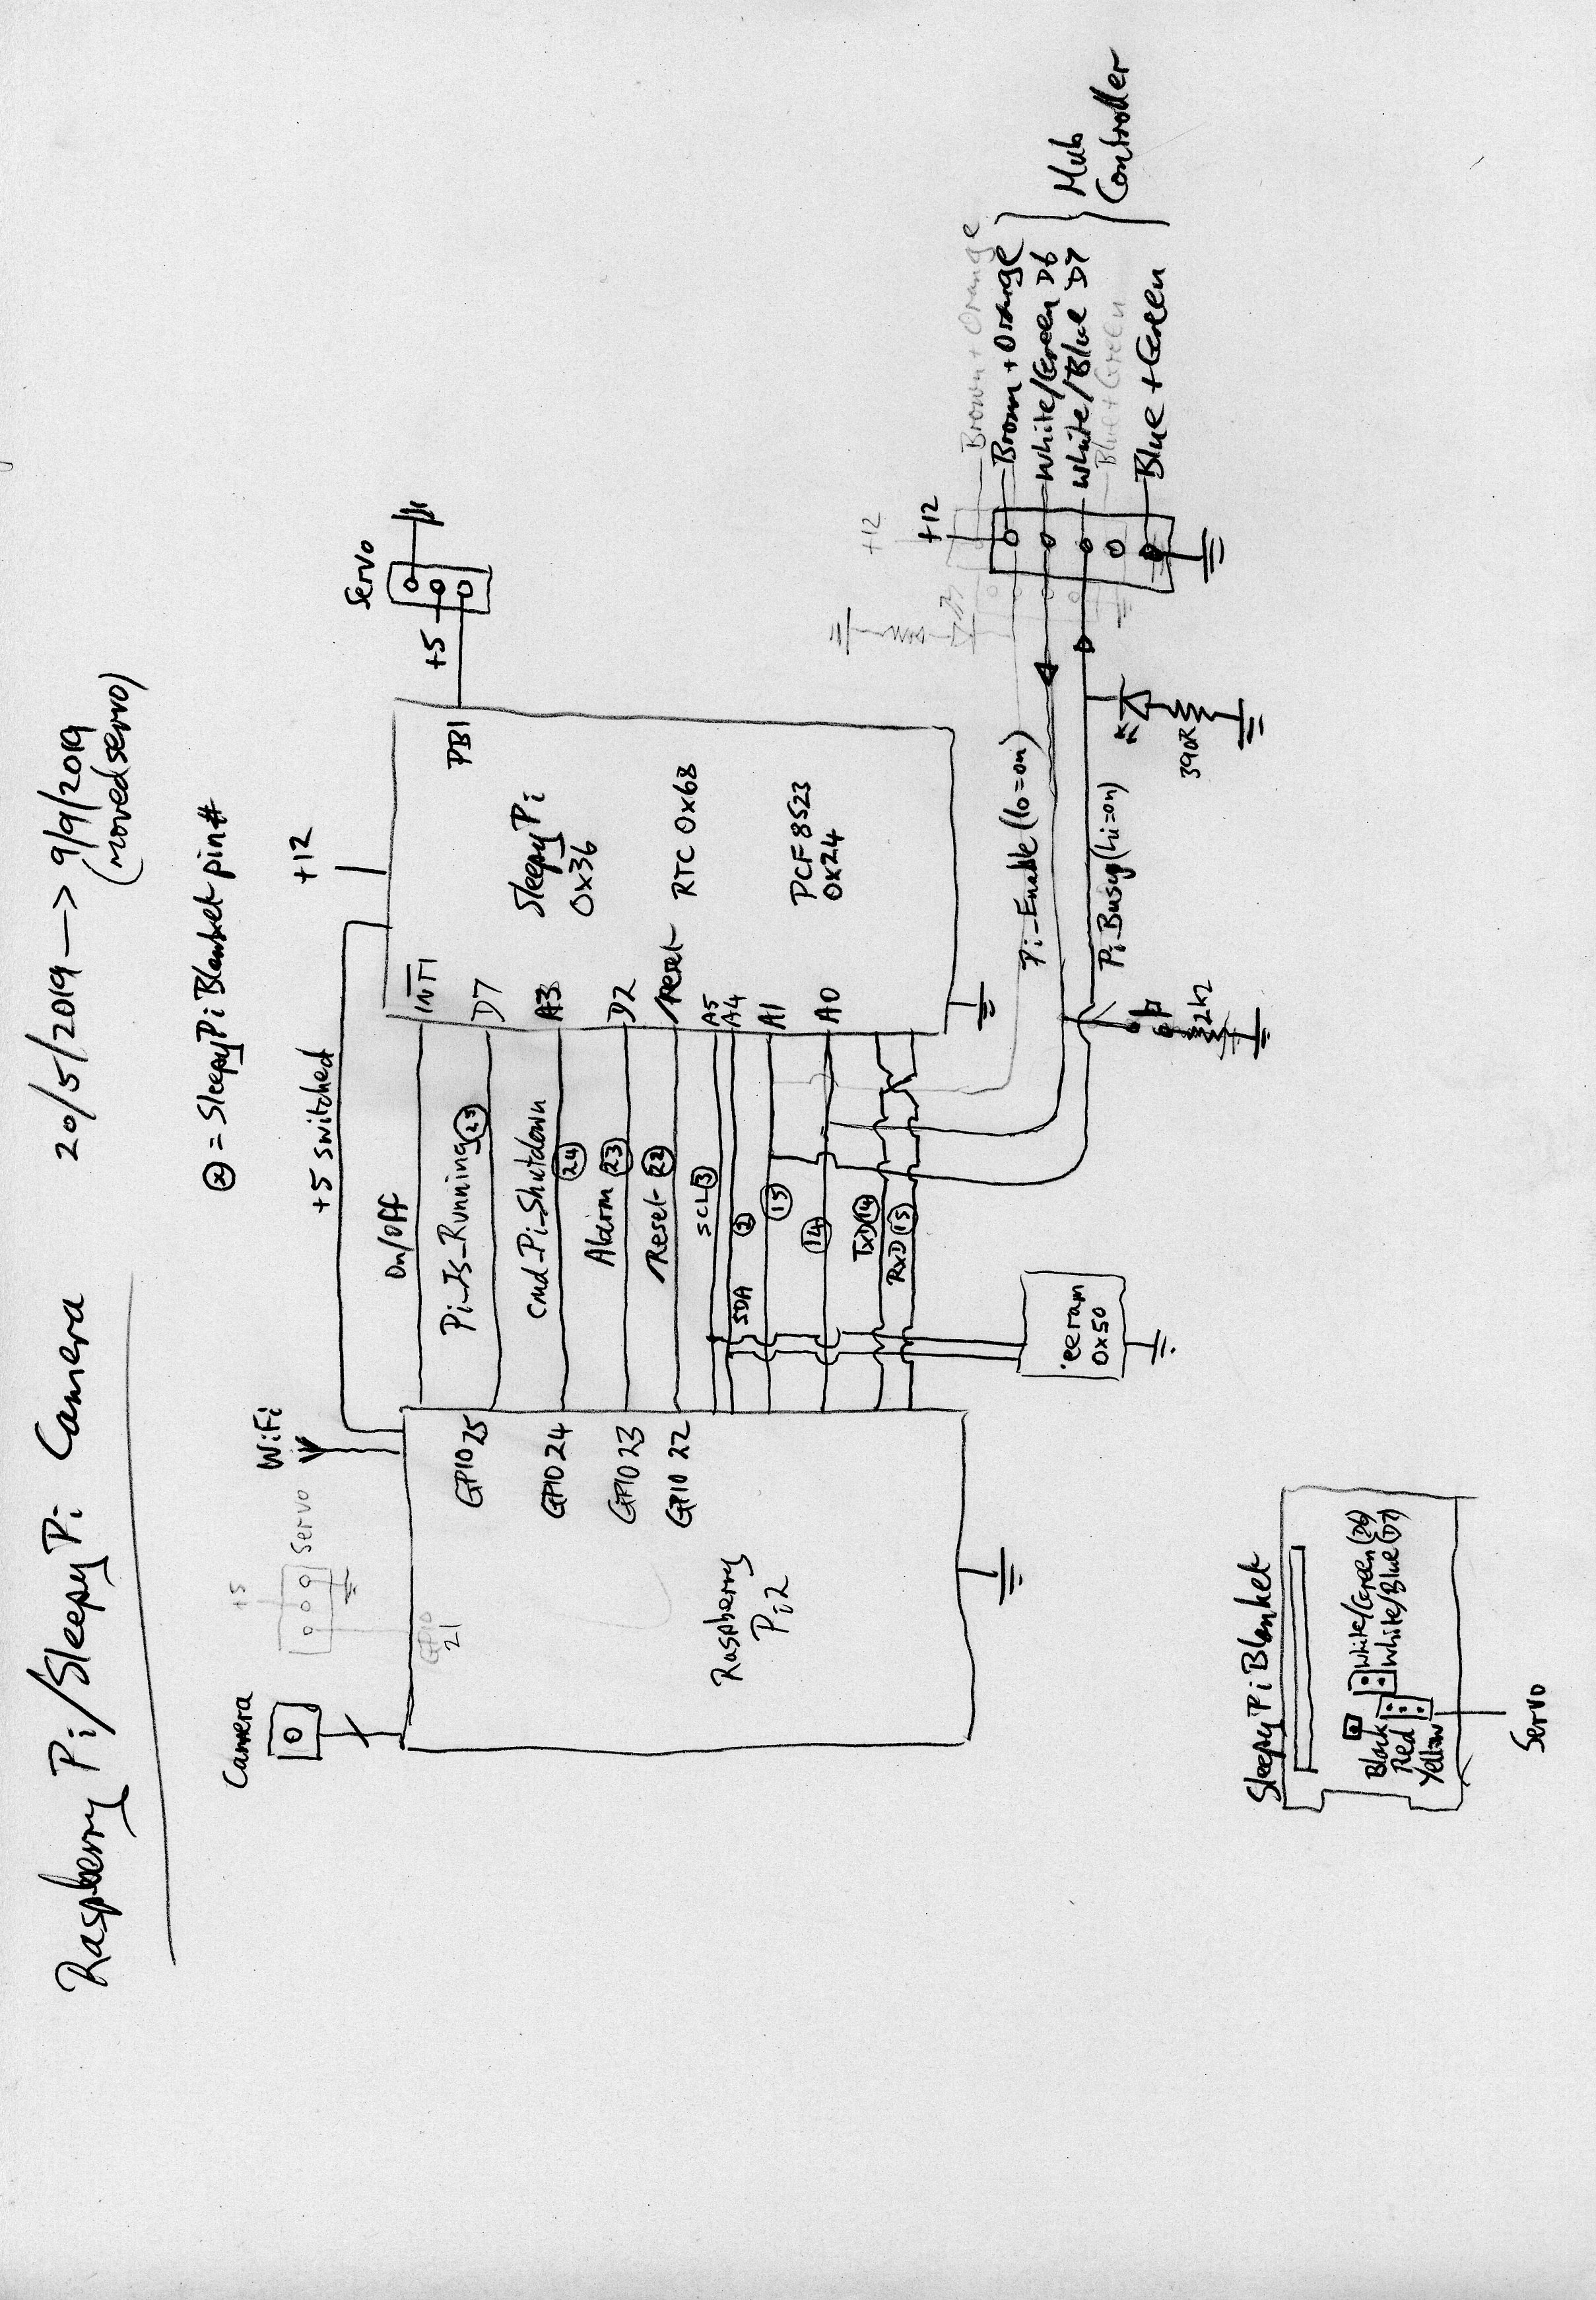 Raspberry Pi/SleepyPi Camera
20/5/2019 → 9/9/2019
(moved servo)
ⓧ = SleepyPiBlanket pin#
Camera
+5
Servo
WiFi
+5 switched
+12
Servo
+5
GPIO
21
On/Off
INT1
PB1
GPIO 25
Pi_Is_Running 25
D7
GPIO 24
Cmd_Pi_Shutdown
24
A3
GPIO 23
Alarm 23
D2
GPIO 22
/Reset 22
/Reset
SCL 3
A5
SDA
2
A4
15
A1
14
A0
TxD 14
RxD 15
Raspberry
Pi 2
SleepyPi
0x36
RTC 0x68
PCF8523
0x24
'eeram
0x50
Pi_Enable (lo=on)
Pi_Busy (hi=on)
2k2
390R
+12
+12
Brown + Orange
Brown + Orange
White/Green D6
White/Blue D7
Blue + Green
Blue + Green
Hub
Controller
SleepyPiBlanket
White/Green (D6)
White/Blue (D7)
Black
Red
Yellow
Servo